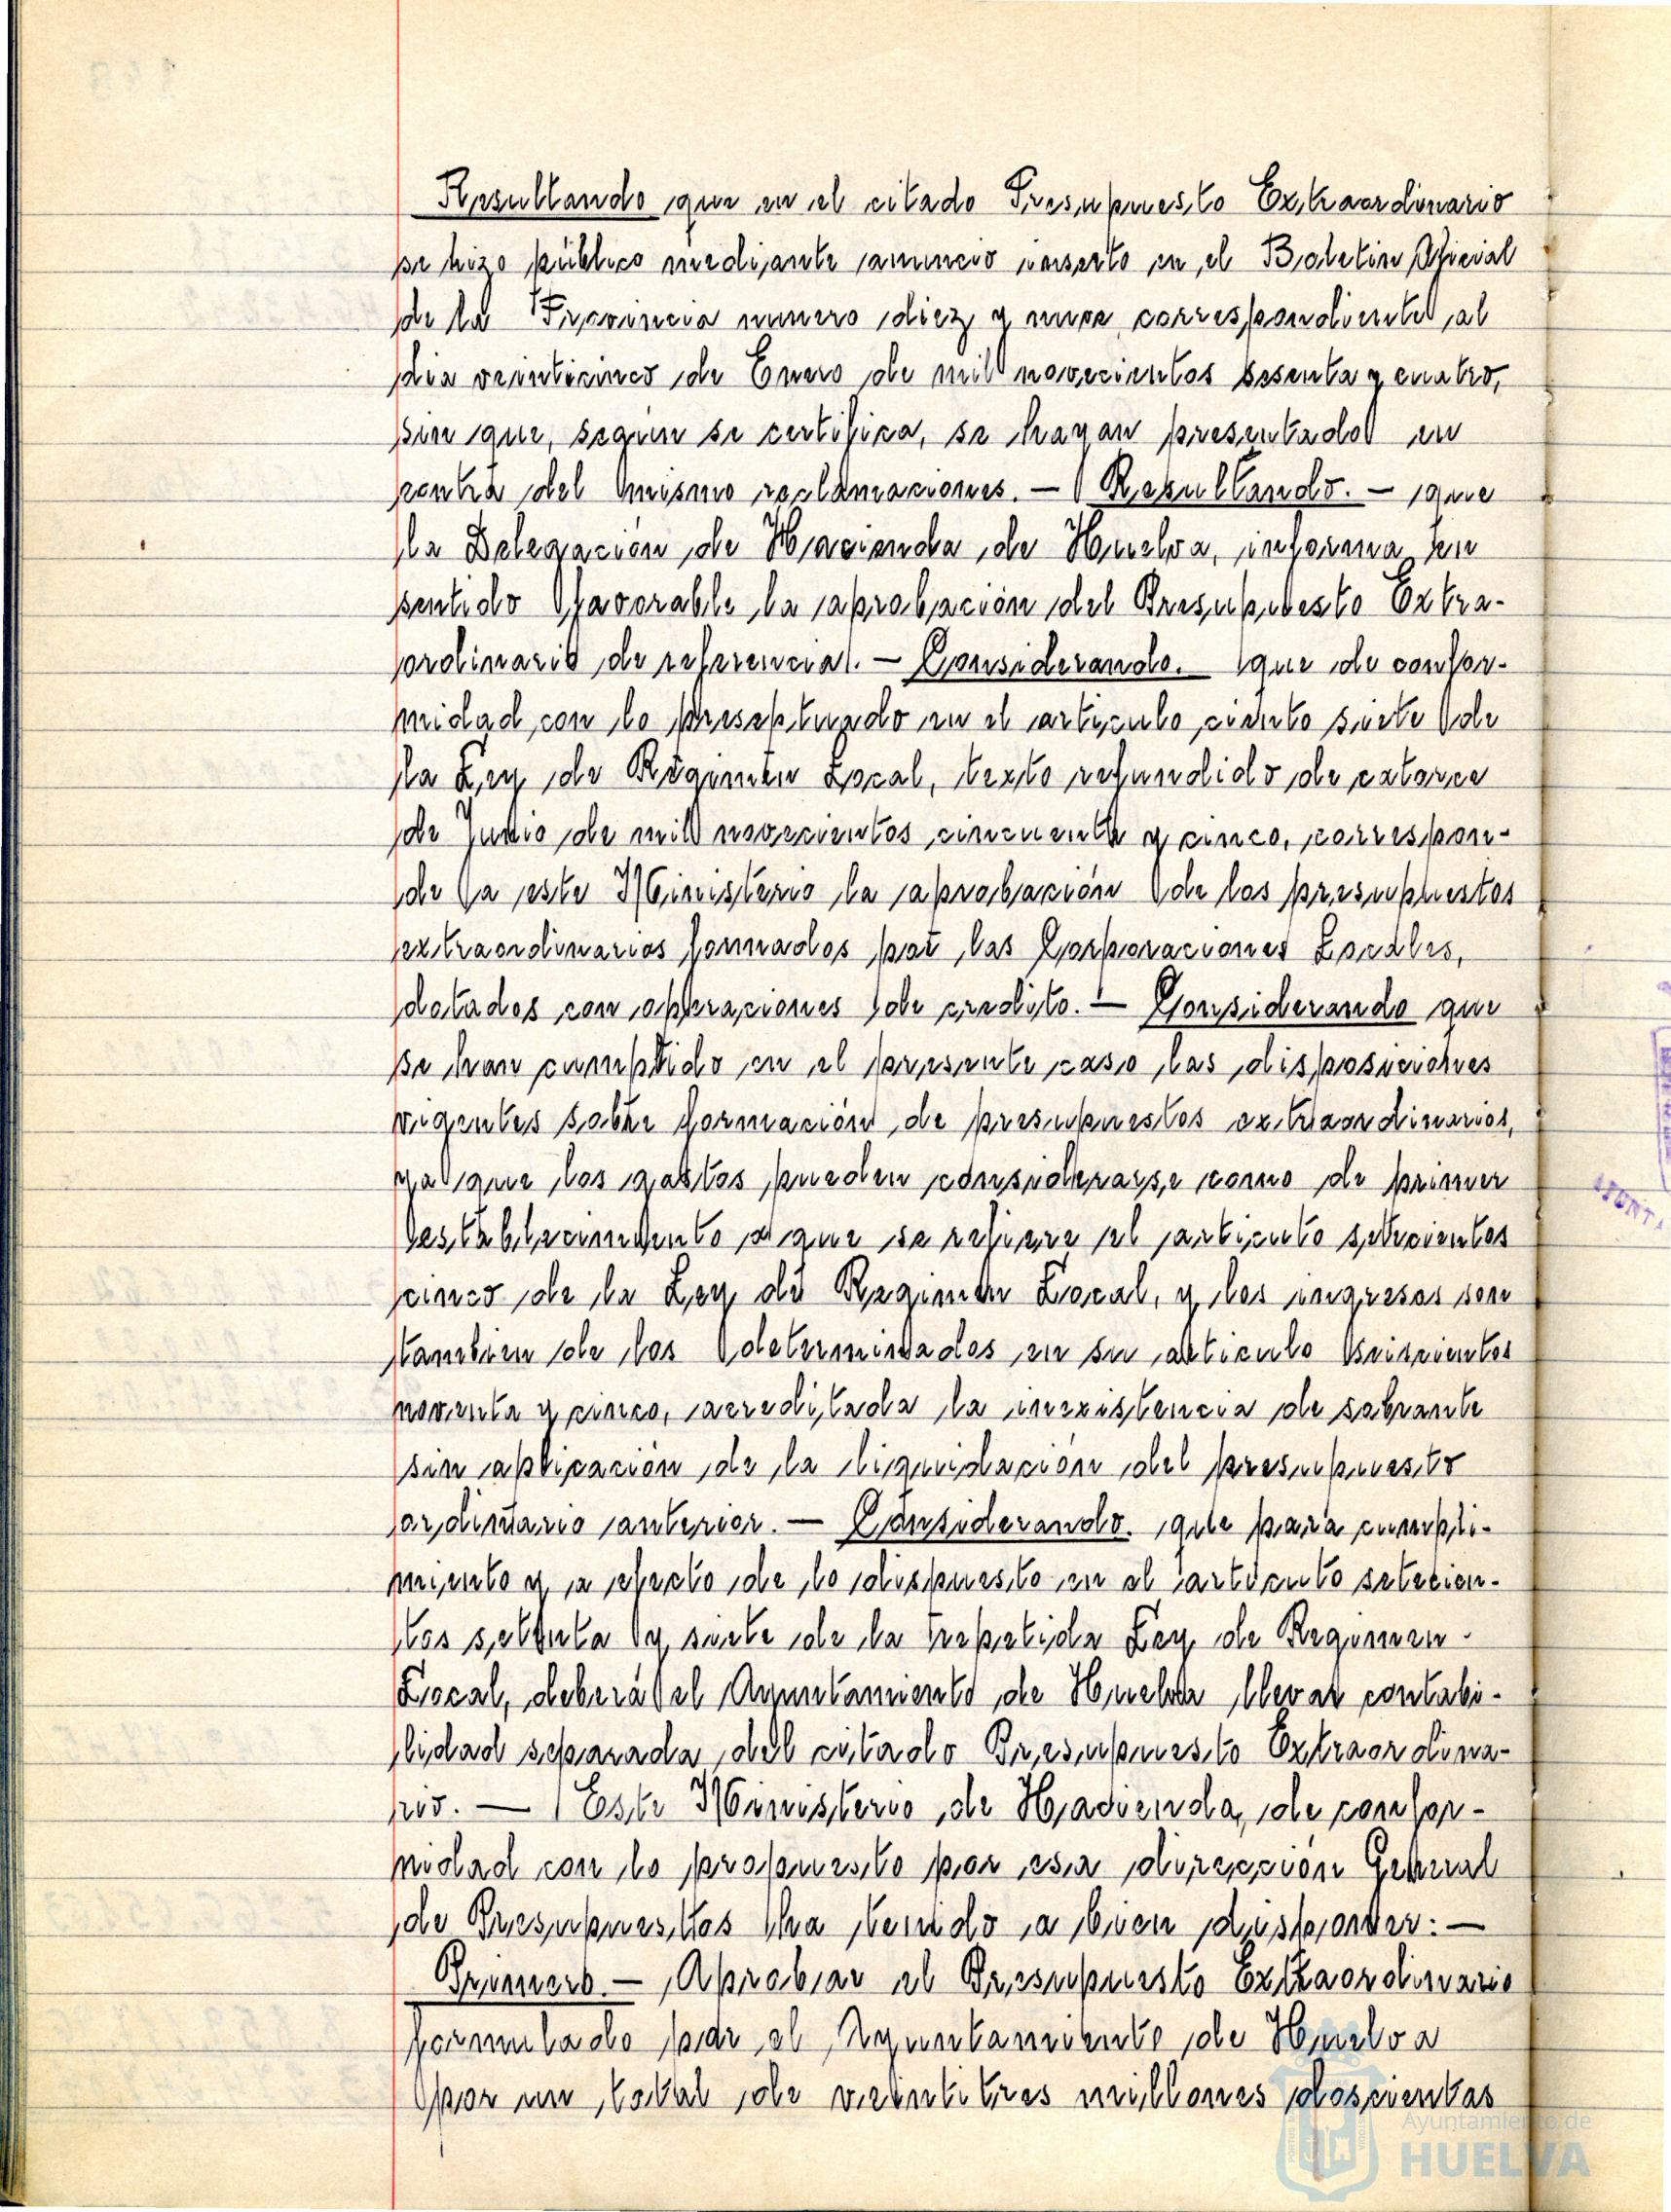 Resultando que en el citado Presupuesto Extraordinario
se hizo público mediante anuncio inserto en el Boletin Oficial
de la Provincia numero diez y nueve correspondiente al
dia veinticinco de Enero de mil novecientos sesenta y cuatro,
sin que, según se certifica, se hayan presentado en
contra del mismo reclamaciones. — Resultando. — que
la Delegación de Hacienda de Huelva, informa en
sentido favorable la aprobación del Presupuesto Extra-
ordinario de referencia. — Considerando. que de confor-
midad con lo preseptuado en el articulo ciento siete de
la Ley de Régimen Local, texto refundido de catorce
de Junio de mil novecientos cincuenta y cinco, correspon-
de a este Ministerio la aprobación de los presupuestos
extraordinarios formados por las Corporaciones Locales,
dotados con operaciones de credito. — Considerando que
se han cumplido en el presente caso las disposiciones
vigentes sobre formación de presupuestos extraordinarios,
ya que los gastos pueden considerarse como de primer
establecimiento a que se refiere el articulo setecientos
cinco de la Ley de Regimen Local, y los ingresos son
tambien de los determinados en su articulo seiscientos
noventa y cinco, acreditada la inexistencia de sobrante
sin aplicación de la liquidación del presupuesto
ordinario anterior. — Considerando. que para cumpli-
miento y a efecto de lo dispuesto en el articulo setecien-
tos setenta y siete de la repetida Ley de Regimen
Local, deberá el Ayuntamiento de Huelva llevar contabi-
lidad separada del citado Presupuesto Extraordina-
rio. — Este Ministerio de Hacienda, de confor-
midad con lo propuesto por esa dirección General
de Presupuestos ha tenido a bien disponer: —
Primero. — Aprobar el Presupuesto Extraordinario
formulado por el Ayuntamiento de Huelva
por un total de veintitres millones doscientas
Ayuntamiento de
HUELVA